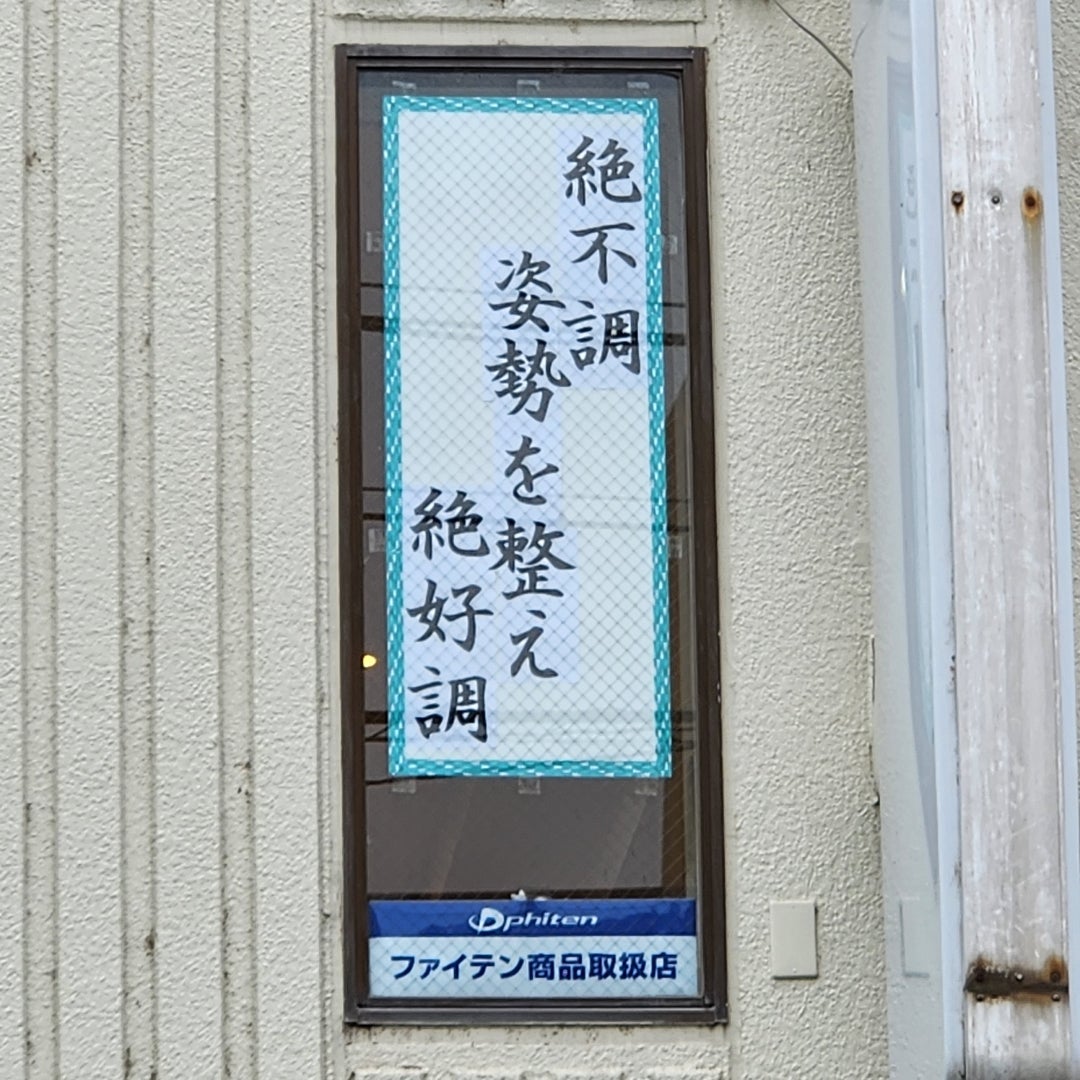 絶不調
姿勢を整え
絶好調
phiten
ファイテン商品取扱店